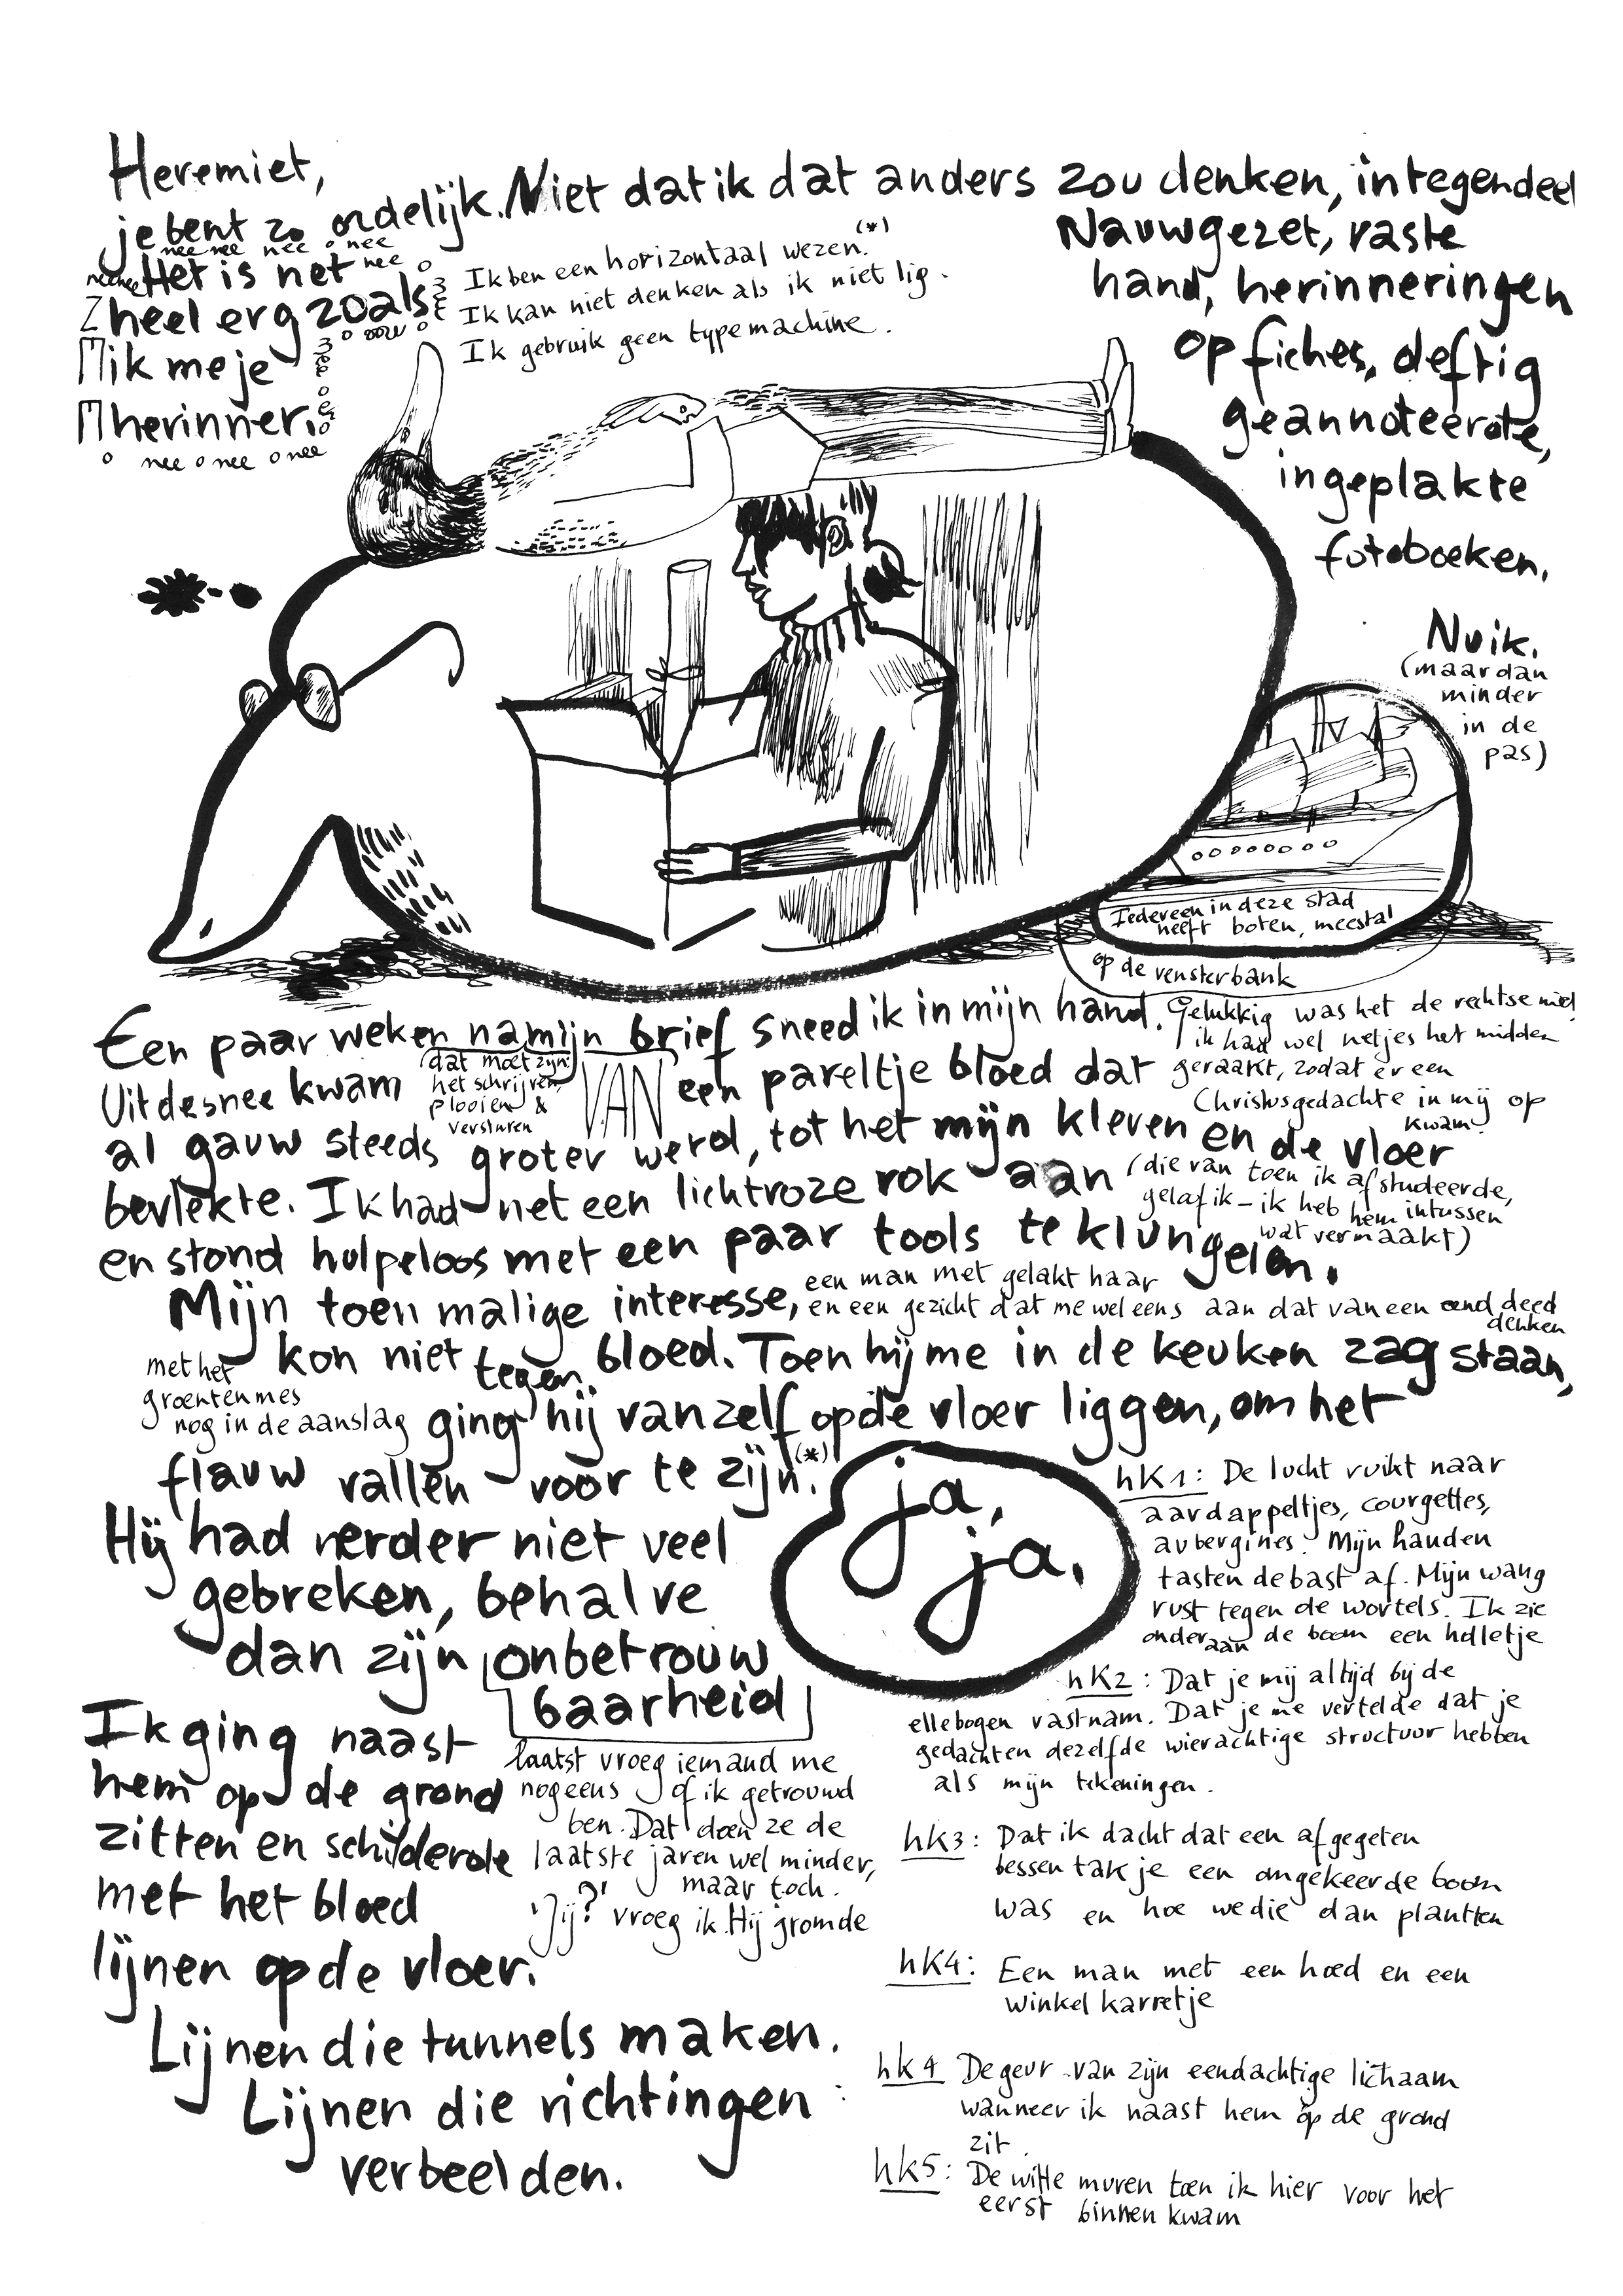 Heremiet,
je bent zo ordelijk. Niet dat ik dat anders zou denken, integendeel
nee nee nee o nee
nee nee Het is net nee o
heel erg zoals
o
ik me je
herinner.
o nee o nee o nee
Ik ben een horizontaal wezen. (*)
Ik kan niet denken als ik niet lig.
Ik gebruik geen type machine.
Nauwgezet, vaste
hand, herinneringen
op fiches, deftig
geannoteerde,
ingeplakte
fotoboeken.
Nu ik.
(maar dan
minder
in de
pas)
Iedereen in deze stad
heeft boten, meestal
op de vensterbank
Een paar weken na mijn brief sneed ik in mijn hand.
(dat moet zijn:
het schrijven,
plooien &
versturen
VAN
Gelukkig was het de rechtse niet,
ik had wel netjes het midden
geraakt, zodat er een
Christusgedachte in mij op
kwam.
Uit de snee kwam een pareltje bloed dat
al gauw steeds groter werd, tot het mijn kleren en de vloer
bevlekte. Ik had net een lichtroze rok aan
(die van toen ik afstudeerde,
geloof ik – ik heb hem intussen
wat vermaakt)
en stond hulpeloos met een paar tools te klungelen.
Mijn toen malige interesse, een man met gelakt haar
en een gezicht dat me wel eens aan dat van een eend deed
denken
kon niet tegen bloed. Toen hij me in de keuken zag staan,
met het
groentenmes
nog in de aanslag ging hij vanzelf op de vloer liggen, om het
flauw vallen voor te zijn. (*)
Hij had verder niet veel
gebreken, behalve
dan zijn onbetrouw
baarheid
ja,
ja.
Ik ging naast
hem op de grond
zitten en schilderde
met het bloed
lijnen op de vloer.
Lijnen die tunnels maken.
Lijnen die richtingen
verbeelden.
laatst vroeg iemand me
nog eens of ik getrouwd
ben. Dat doen ze de
laatste jaren wel minder,
maar toch.
'Jij?' vroeg ik. Hij gromde
hk1: De lucht ruikt naar
aardappeltjes, courgettes,
aubergines. Mijn handen
tasten de bast af. Mijn wang
rust tegen de wortels. Ik zie
onder aan de boom een holletje
hk2: Dat je mij altijd bij de
ellebogen vastnam. Dat je me vertelde dat je
gedachten dezelfde wierachtige structuur hebben
als mijn tekeningen.
hk3: Dat ik dacht dat een afgegeten
bessen takje een omgekeerde boom
was en hoe we die dan plantten
hk4: Een man met een hoed en een
winkel karretje
hk4 De geur van zijn eendachtige lichaam
wanneer ik naast hem op de grond
zit.
hk5: De witte muren toen ik hier voor het
eerst binnen kwam